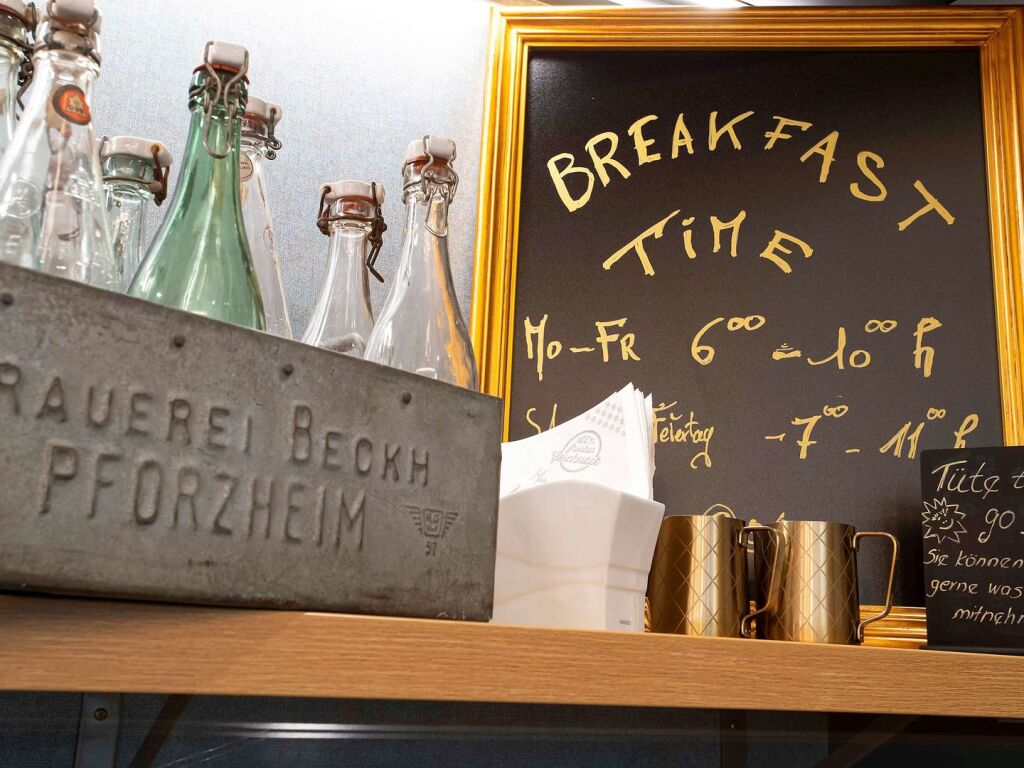 BREAKFAST
TIME
Mo-FR 6⁰⁰ - 10⁰⁰ h
Feiertag - 7⁰⁰ - 11⁰⁰ h
RAUEREI BECKH
PFORZHEIM
97
Tüte t
go
Sie können
gerne was
mitnehm